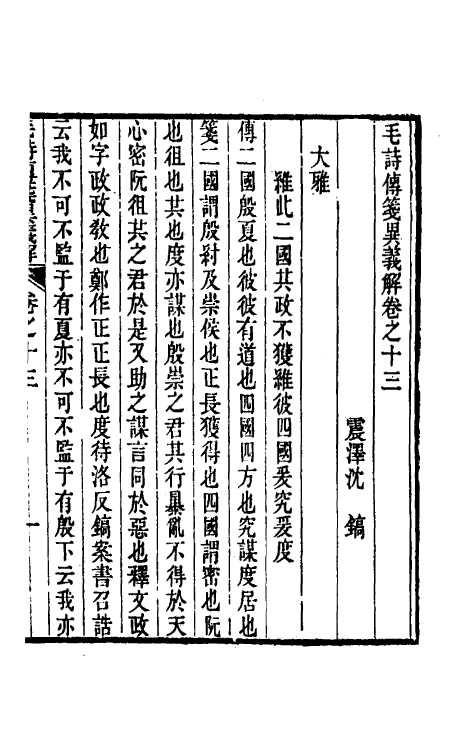 毛詩傳箋異義解卷之十三
震澤沈　鎬
大雅
維此二國其政不獲維彼四國爰究爰度
傳二國殷夏也彼彼有道也四國四方也究謀度居也
箋二國謂殷紂及崇侯也正長獲得也四國謂密也阮
也徂也共也度亦謀也殷崇之君其行暴亂不得於天
心密阮徂共之君於是又助之謀言同於惡也釋文政
如字政政敎也鄭作正正長也度待洛反鎬案書召誥
云我不可不監于有夏亦不可不監于有殷下云我亦
毛詩傳箋異義解　卷之十三　一